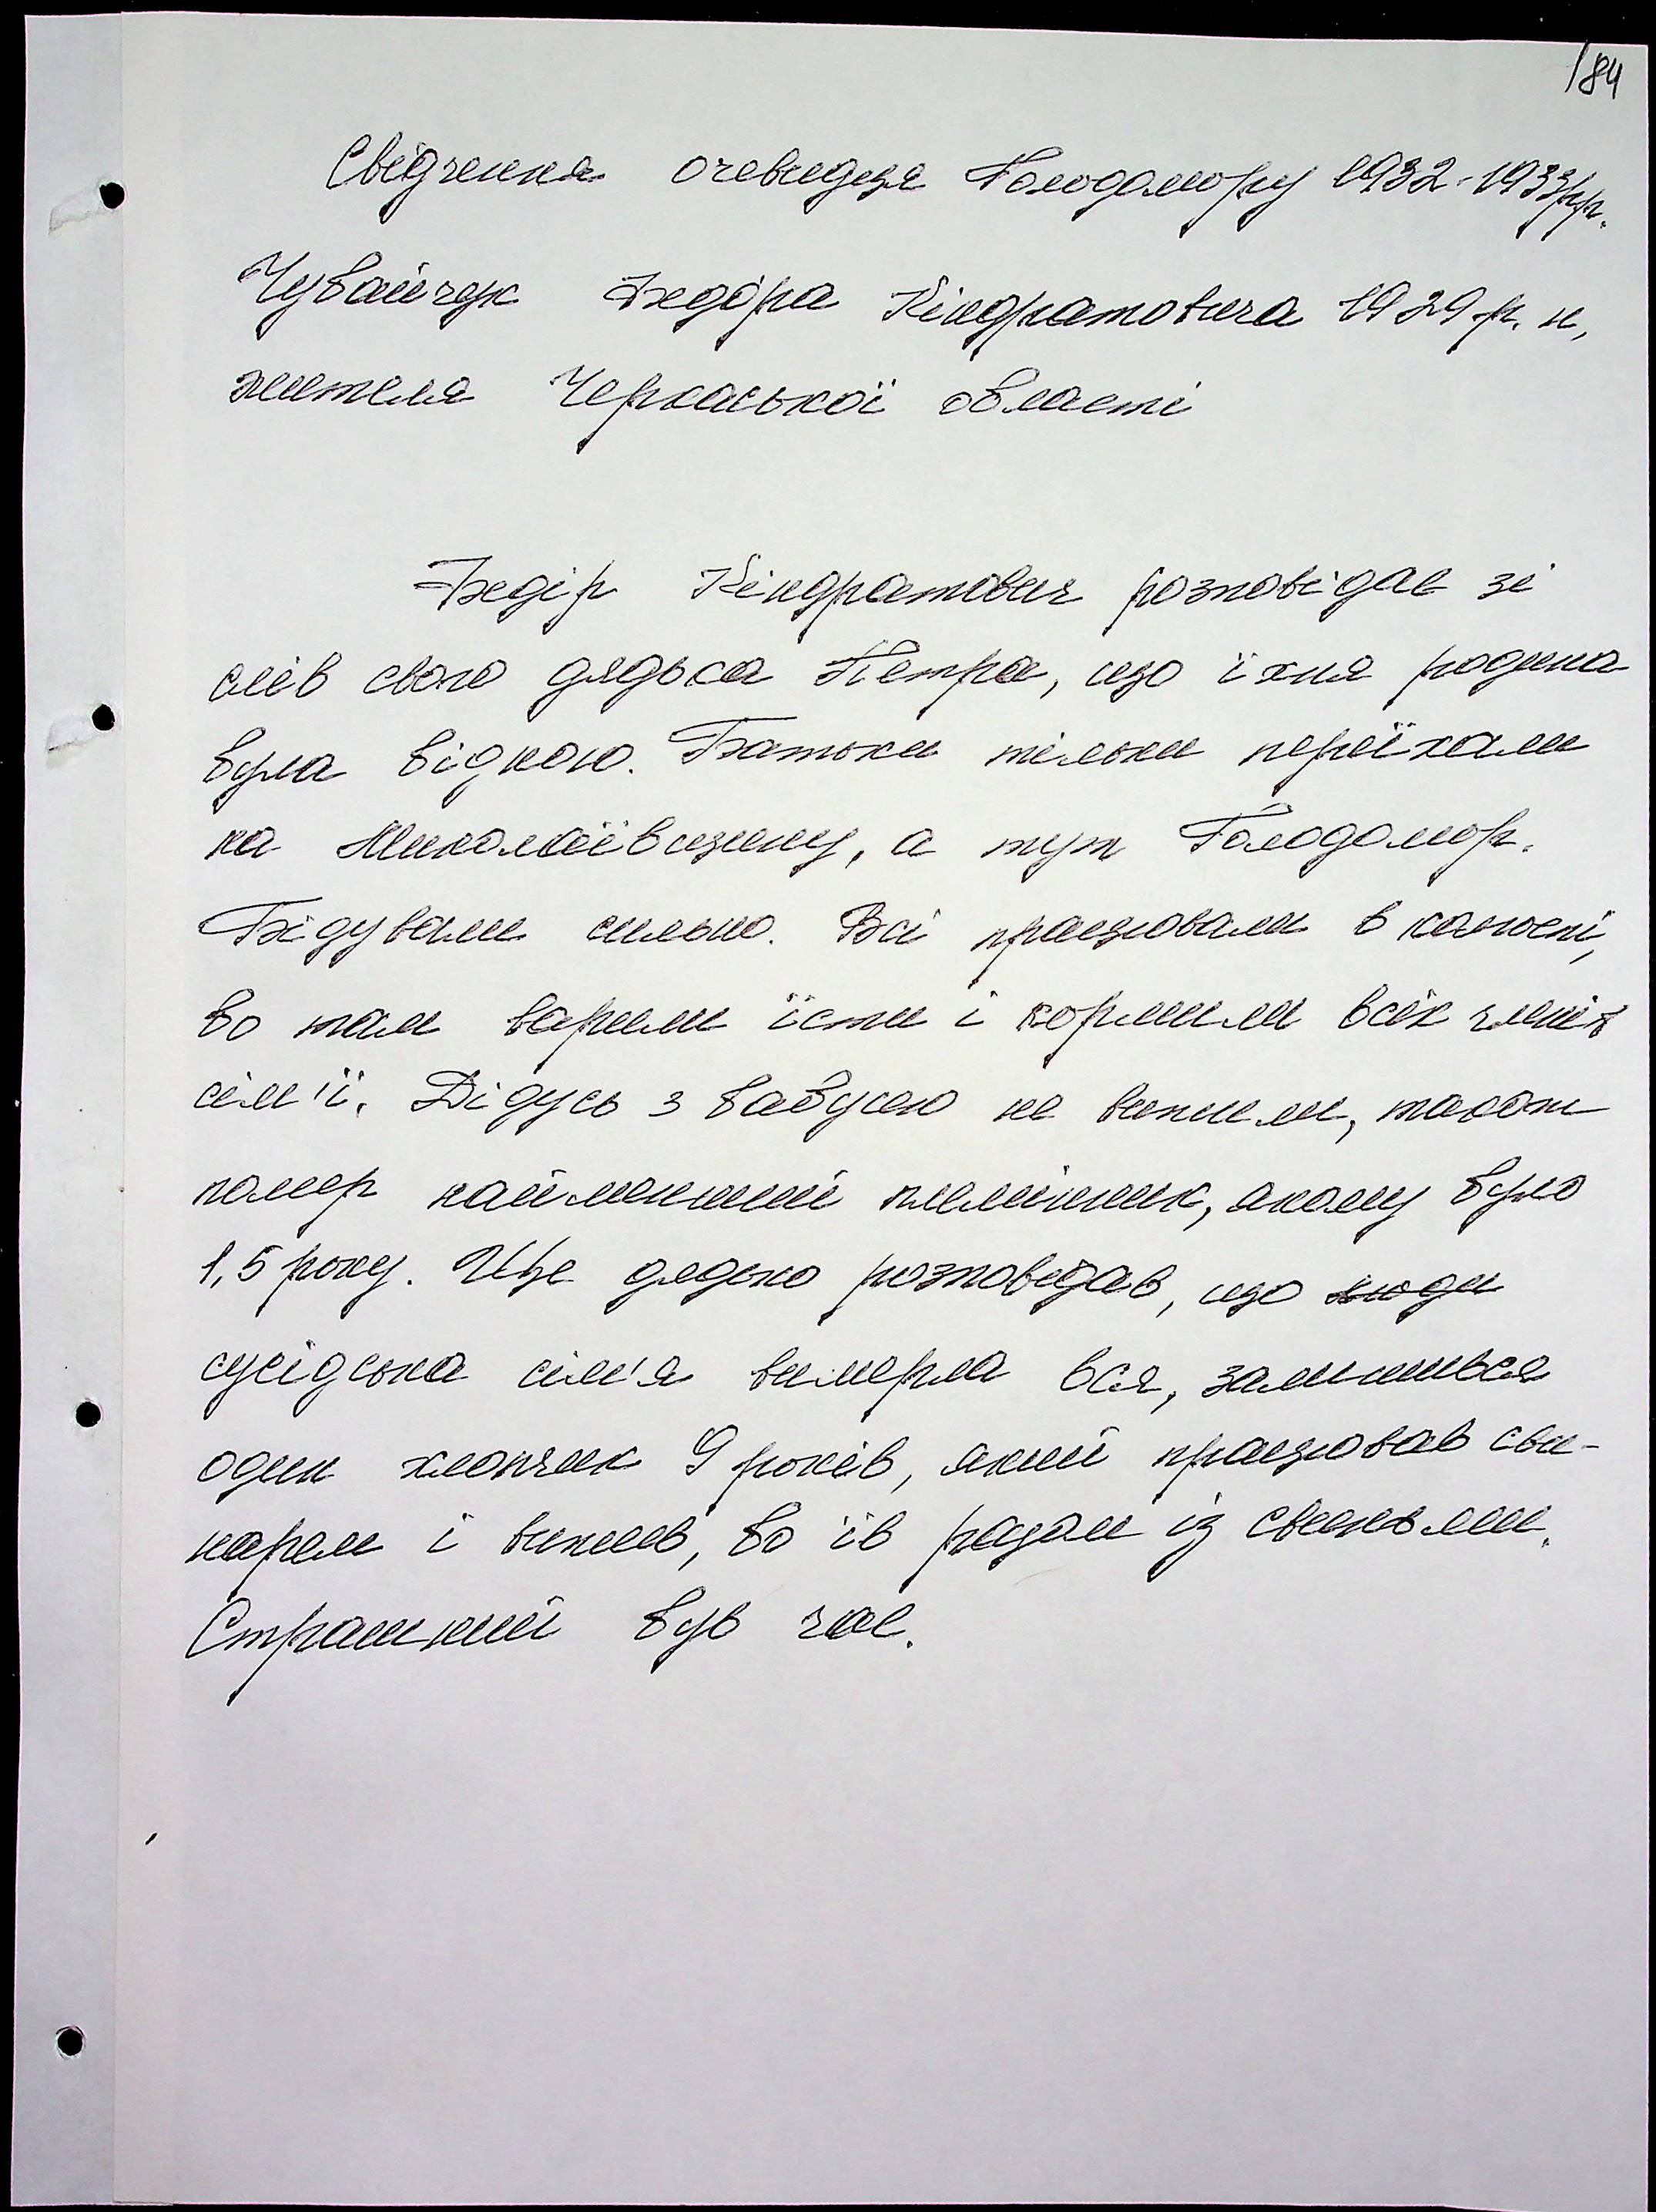 184
Свідчення очевидця Голодомору 1932-1933рр.
Чувайчук Федора Кіндратовича 1929 р. н,
жителя Черкаської області
Федір Кіндратович розповідав зі
слів свого дядька Петра, що їхня родина
була бідною. Батьки тільки переїхали
на Миколаївщину, а тут Голодомор.
Бідували сильно. Всі працювали в колгоспі,
бо там варили їсти і кормили всіх членів
сім'ї. Дідусь з бабусею не вижили, також
помер найменший племінник, якому було
1,5 року. Ще дядько розповідав, що люди
сусідська сім'я вимерла вся, залишився
один хлопчик 9 років, який працював сви-
нарем і вижив, бо їв разом із свиньми.
Страшний був час.